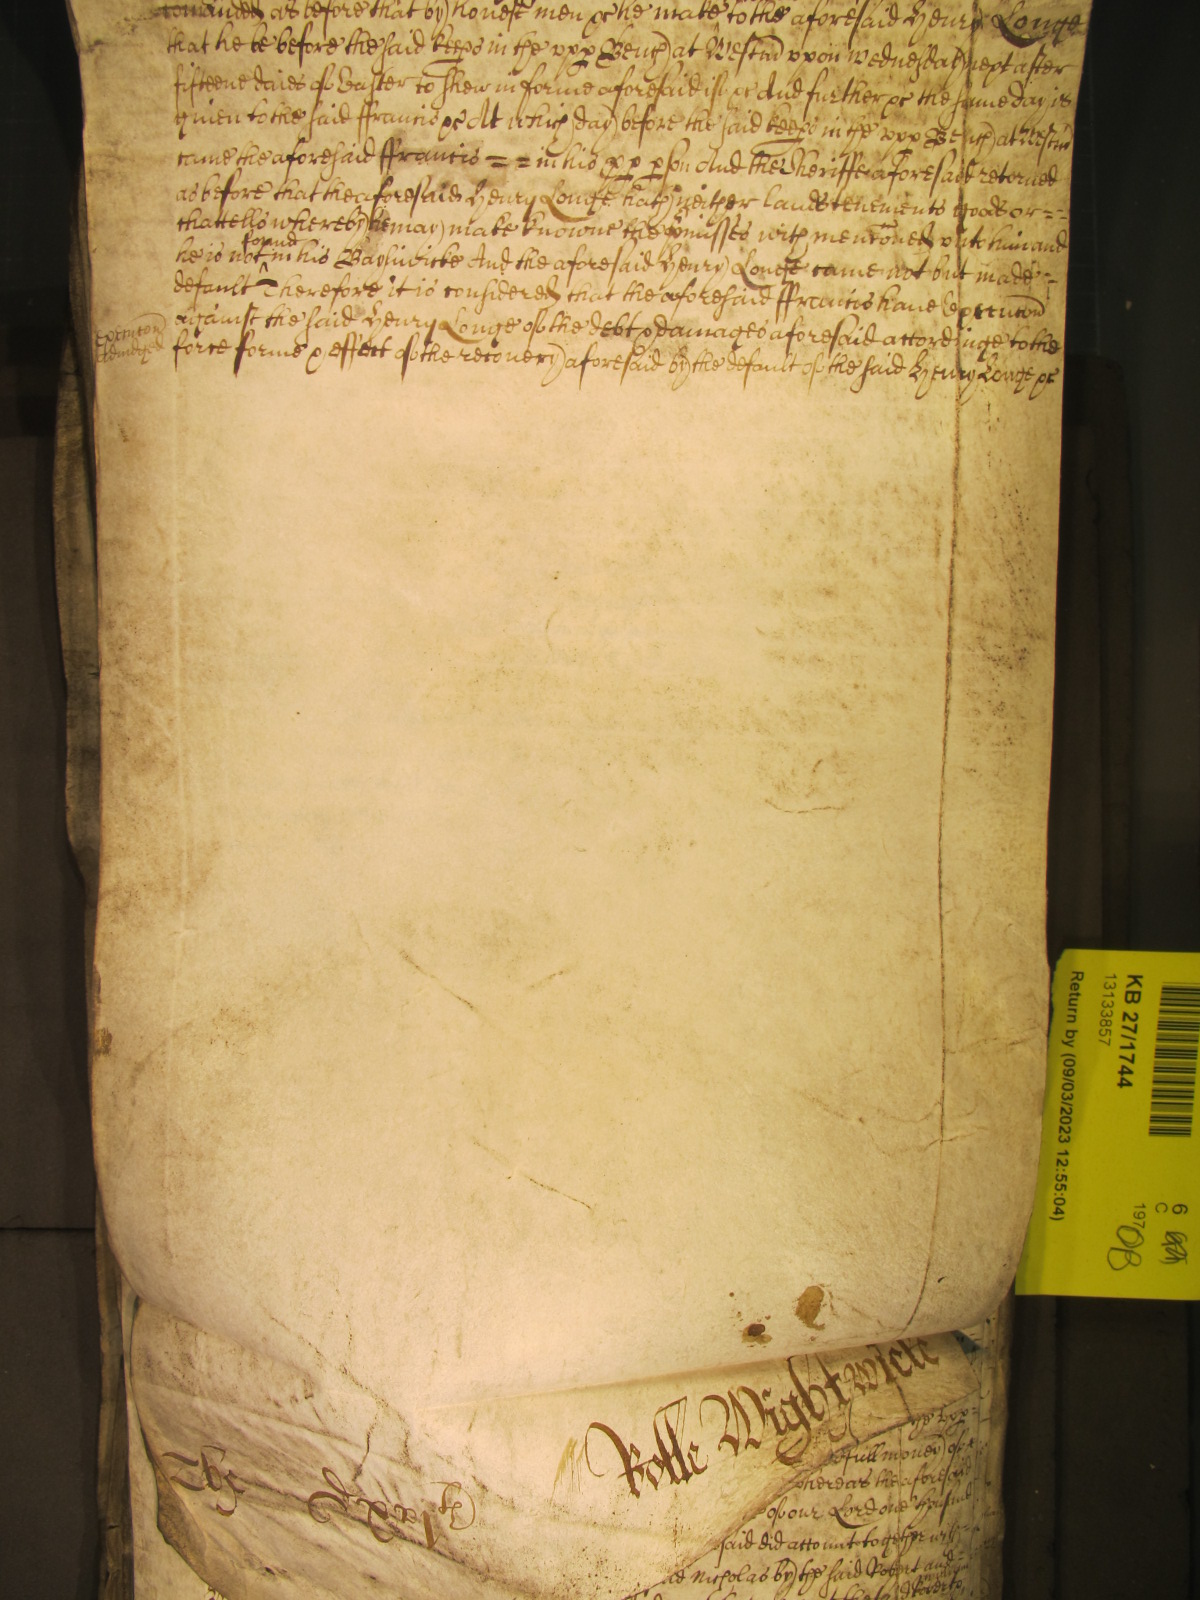 comanded as before that by honest men &c he make to the aforesaid Henry Longe
that he be before the said keeps in the upp Bench at Westm̄ uppon wednesday next after
fifteene daies of Easter to shew in forme aforesaid if &c And further &c the same day is
given to the said ffrancis &c At which day before the said keeps in the upp Bench at Westm̄
came the aforesaid ffrancis = = in his p̱p p̱son And the Sheriffe aforesaid retorned
as before that the aforesaid Henry Longe hath neither lands tenements goods or = =
chattells whereby he may make knowne the p̱misses with menc̄oned unto him and
he is not found in his Bayliwicke And the aforesaid Henry Longe came not but made =
default Therefore it is considered that the aforesaid ffrancis have Execuc̄on
against the said Henry Longe of the debt & damages aforesaid accordinge to the
force forme & effect of the recovery aforesaid by the default of the said Henry Longe &c
Execuc̄on
adiudged
Rolle Wightwick
The
full money of
whereas the aforesaid
of our Lord one thousand
said did account together with
Nicholas by the said Robert and
said Roberto
KB 27/1744
13133857
Return by (09/03/2023 12:55:04)
6
C
197